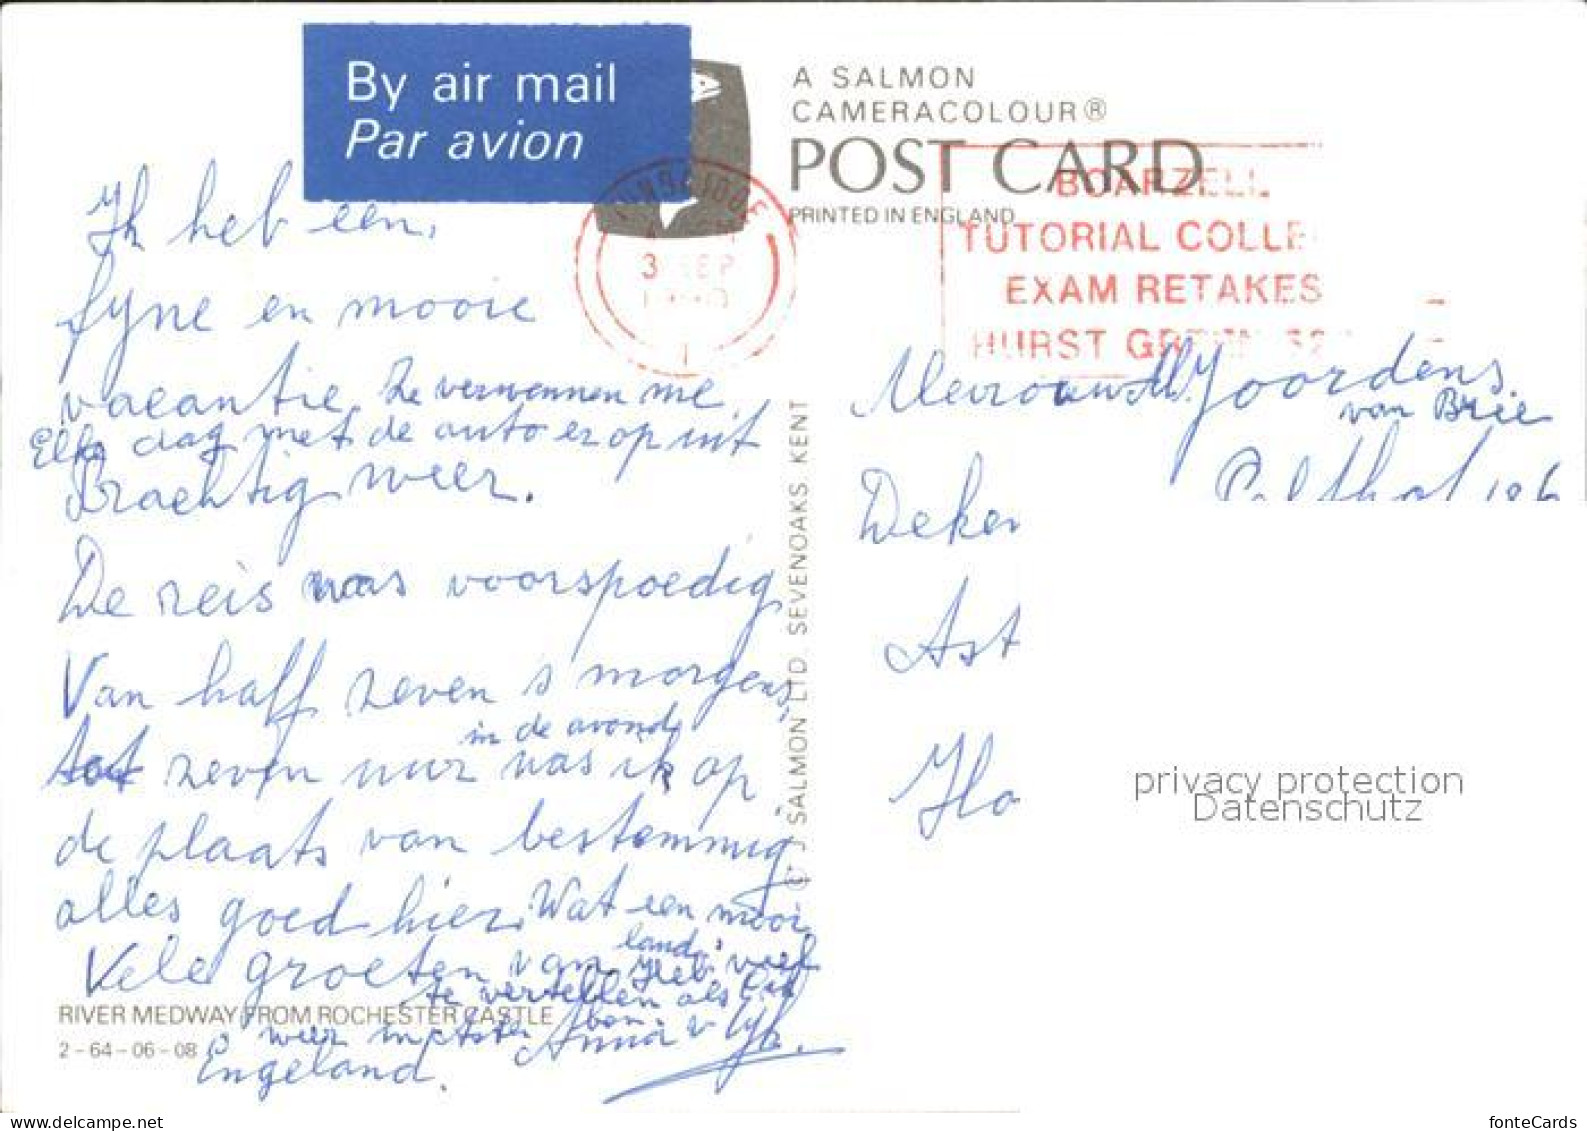 By air mail
Par avion
A SALMON
CAMERACOLOUR®
POST CARD
PRINTED IN ENGLAND
BOARZELL
TUTORIAL COLLE
EXAM RETAKES
HURST GREEN
3 SEP
Ik heb een,
fyne en mooie
vacantie. Ze verwennen me.
Elke dag met de auto er op uit
Prachtig weer.
De reis was voorspoedig
Van half zeven s morgens,
in de avond
tot zeven uur was ik op
de plaats van bestemmig.
alles goed hier. Wat een mooi
land.
Vele groeten van Heb veel
te vertellen als ik
weer in Asten ben.
Anna v
Engeland.
Mevrouw M. Joordens.
van Brie
Deken
Ast
Ho
© J SALMON LTD. SEVENOAKS KENT
RIVER MEDWAY FROM ROCHESTER CASTLE
2-64-06-08
privacy protection
Datenschutz
fonteCards